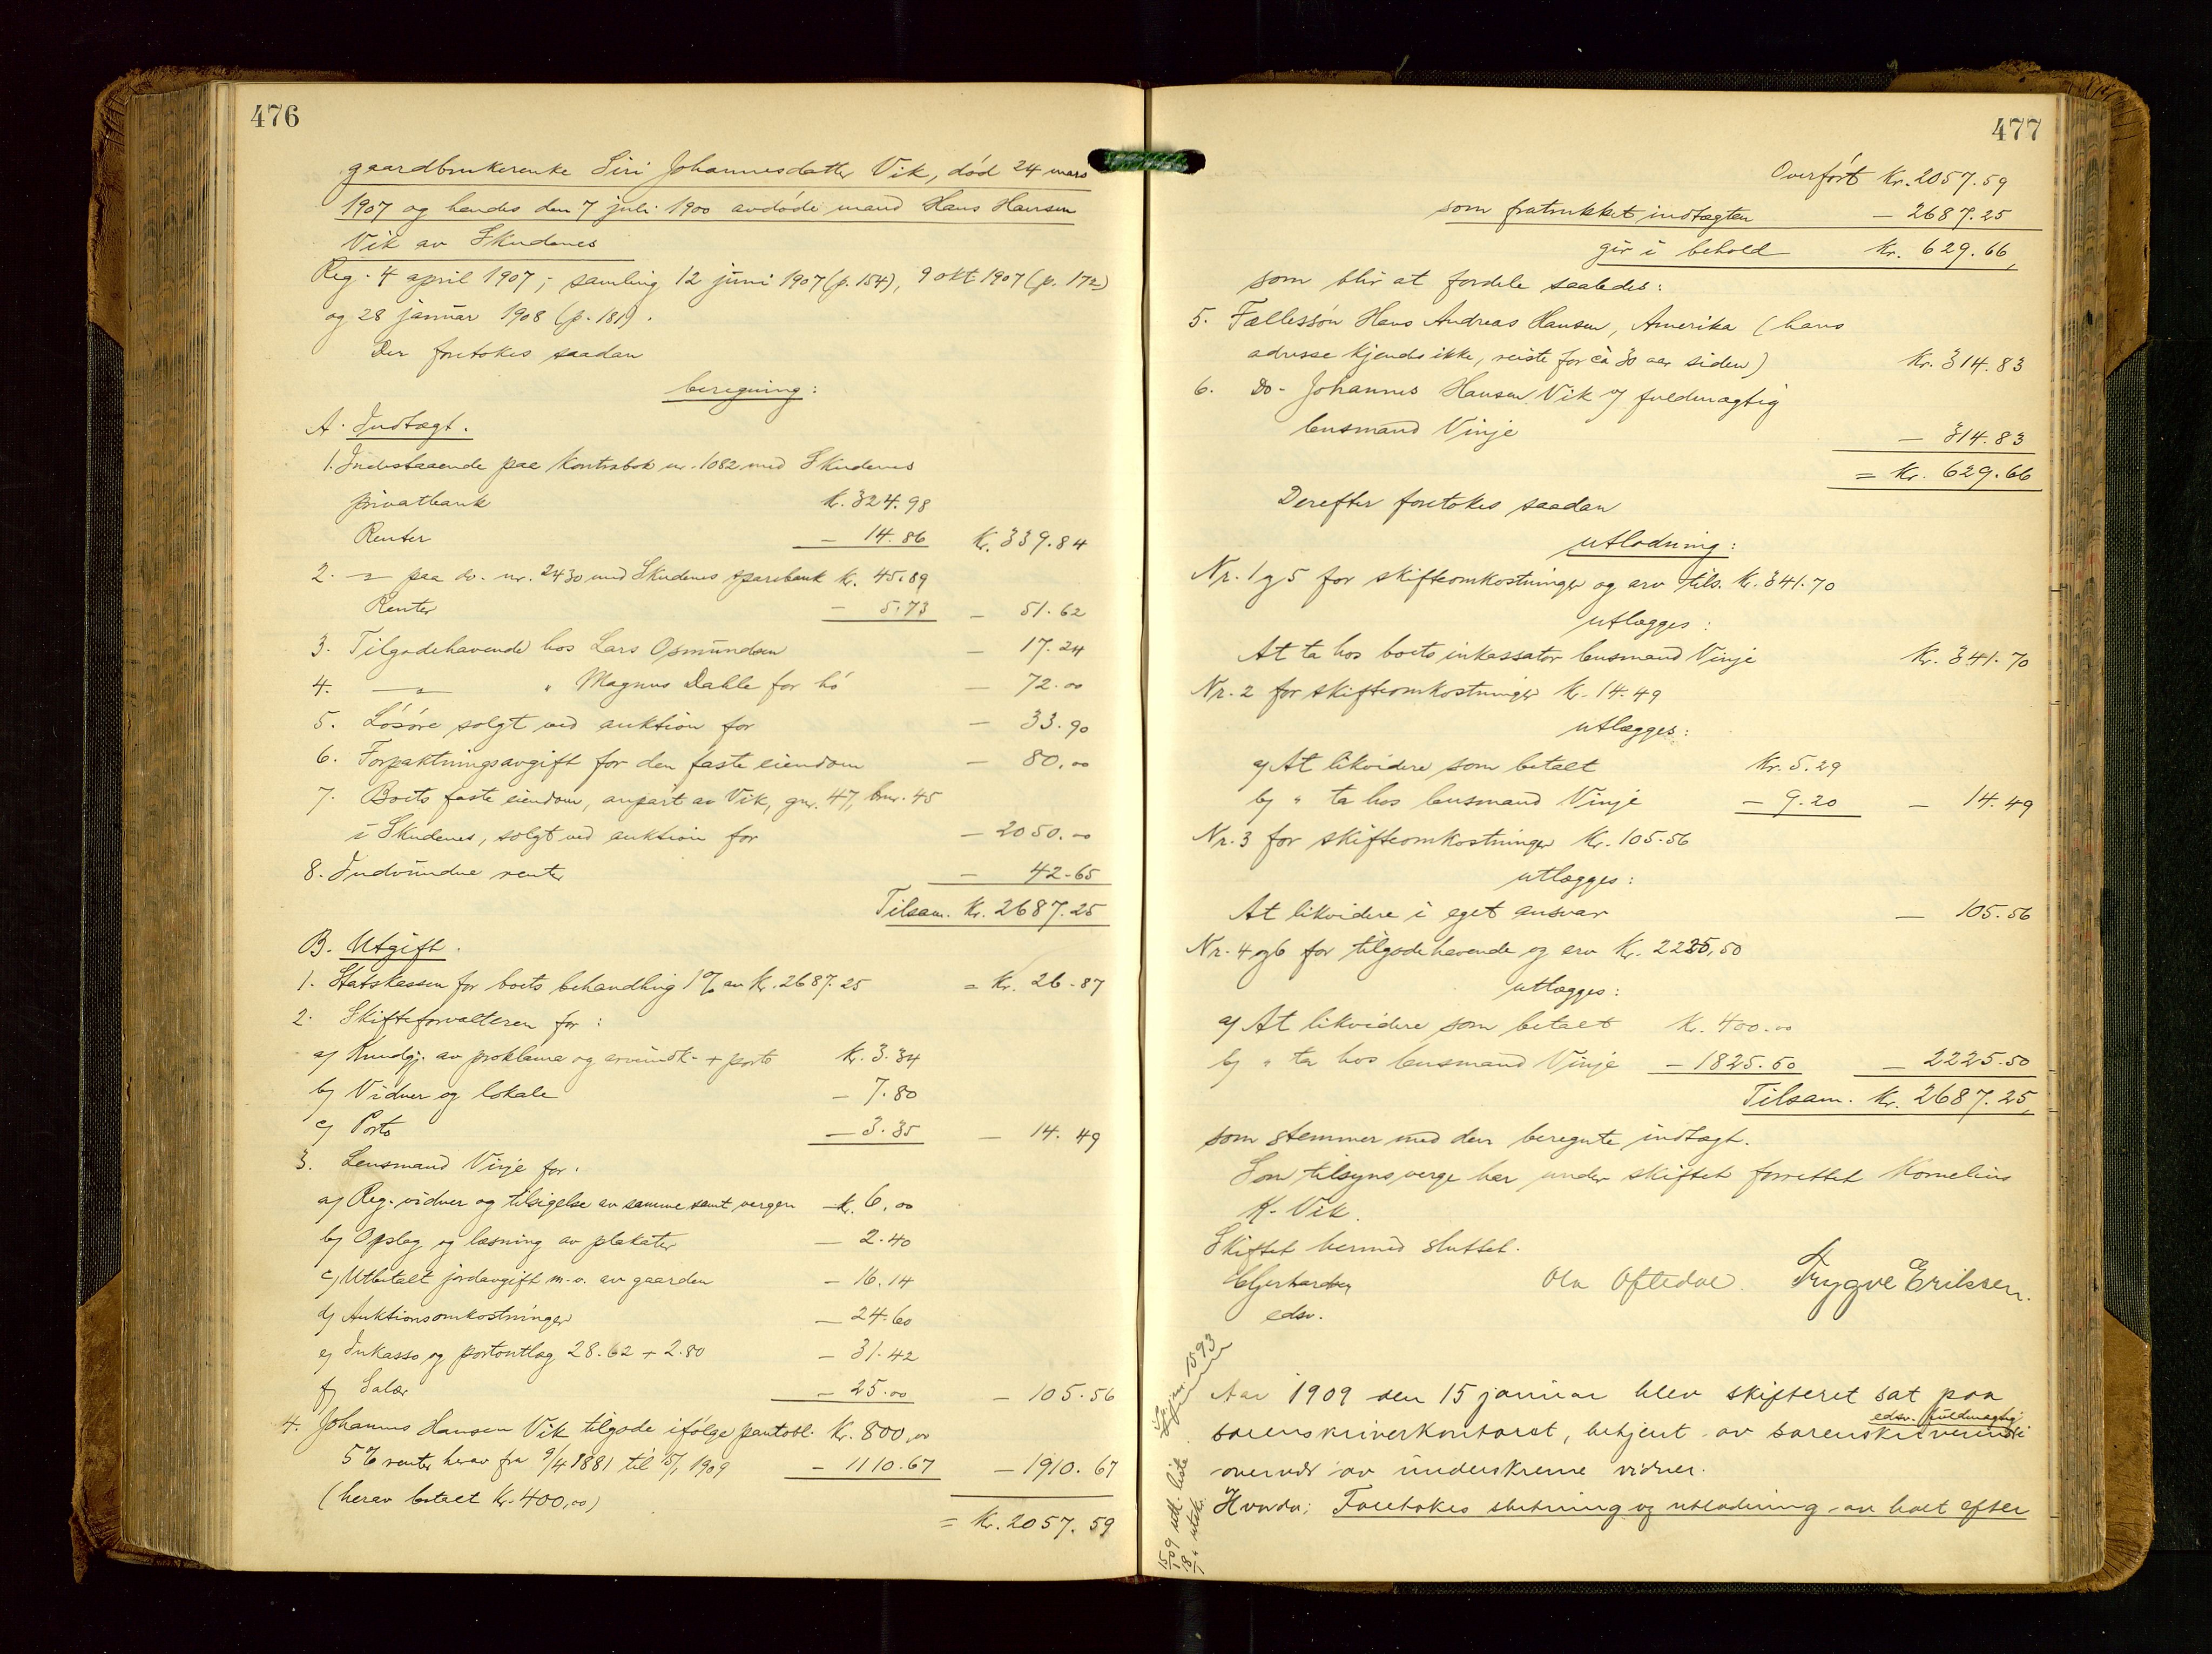 476
gaardbrukerenke Siri Johannesdatter Vik, død 24 mars
1907 og hendes den 7 juli 1900 avdøde mand Hans Hansen
Vik av Skudenes
Reg. 4 april 1907, samling 12 juni 1907 (p. 154), 9 okt. 1907 (p. 172)
og 28 januar 1908 (p. 181).
Der foretokes saadan
beregning:
A. Indtægt.
1. Indestaaende paa kontrabok nr. 1082 med Skudenes
privatbank Kr. 324.98
Renter — 14.86 Kr. 339.84
2. —"— paa do. nr. 2430 med Skudenes sparebank Kr. 45.89
Renter — 5.73 — 51.62
3. Tilgodehavende hos Lars Osmundsen — 17.24
4. —"— " Magnus Dahle for hö — 72.00
5. Løsøre solgt ved auktion for — 33.90
6. Forpaktningsavgift for den faste eiendom — 80.00
7. Boets faste eiendom, anpart av Vik, gnr. 47, bnr. 45
i Skudenes, solgt ved auktion for — 2050.00
8. Indvundne renter — 42.65
Tilsam. Kr. 2687.25
B. Utgift.
1. Statskassen for boets behandling 1 % av Kr. 2687.25 = Kr. 26.87
2. Skifteforvalteren for:
a) Kundgj. av proklama og arvindk. + porto Kr. 3.34
b) Vidner og lokale — 7.80
c) Porto — 3.35 — 14.49
3. Lensmand Vinje for:
a) Reg. vidner og tilsigelse av samme samt vergen Kr. 6.00
b) Opslag og læsning av plakater — 2.40
c) Utbetalt jordavgift m.v. av gaarden — 16.14
d) Auktionsomkostninger — 24.60
e) Inkasso og portoutlæg 28.62 + 2.80 — 31.42
f) Salær — 25.00 — 105.56
4. Johannes Hansen Vik tilgode ifølge pantobl. Kr. 800.00
5 % renter herav fra 9/4 1881 til 15/1 1909 — 1110.67 — 1910.67
(herav betalt Kr. 400,00)
= Kr. 2057.59
477
Overført Kr. 2057.59
som fratrukket indtægten — 2687.25
gir i behold Kr. 629.66,
som blir at fordele saaledes:
5. Fællessøn Hans Andreas Hansen, Amerika (hans
adresse kjendes ikke, reiste for ca 30 aar siden) Kr. 314.83
6. Do. Johannes Hansen Vik v/ fuldmægtig
lensmand Vinje — 314.83
= Kr. 629.66
Derefter foretokes saadan
utlodning:
Nr. 1 og 5 for skifteomkostninger og arv tils. Kr. 341.70
utlægges:
At ta hos boets inkassator lensmand Vinje Kr. 341.70
Nr. 2 for skifteomkostninger Kr. 14.49
utlægges:
a) At likvidere som betalt Kr. 5.29
b) " ta hos lensmand Vinje — 9.20 — 14.49
Nr. 3 for skifteomkostninger Kr. 105.56
utlægges:
At likvidere i eget ansvar — 105.56
Nr. 4 og 6 for tilgodehavende og arv Kr. 2225,50
utlægges:
a) At likvidere som betalt Kr. 400.00
b) " ta hos lensmand Vinje — 1825.50 — 2225.50
Tilsam. Kr. 2687.25,
som stemmer med den beregnte indtægt.
Som tilsynsverge har under skiftet forrettet Kornelius
K. Vik.
Skiftet hermed sluttet.
Ola Oftedal. Trygve Eriksen.
edsv.
Aar 1909 den 15 januar blev skifteret sat paa
sorenskriverkontoret, betjent av sorenskriverens edsv. fuldmægtig i
overvær av underskrevne vidner.
Hvorda: Foretokes slutning og utlodning av boet efter
15/1 09 utl. liste
18/1 " utskr.
1593